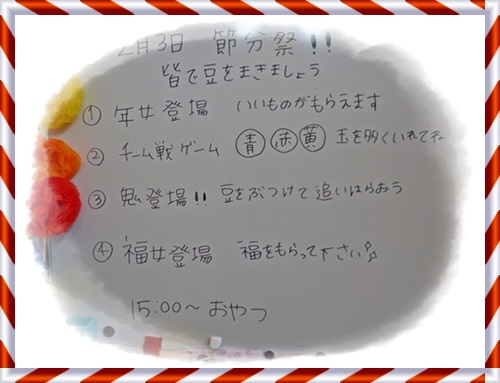 2月3日 節分祭!!
皆で豆をまきましょう
① 年女登場 いいものがもらえます
② チーム戦ゲーム 青 赤 黄 玉を多くいれてネ
③ 鬼登場!! 豆をぶつけて追いはらおう
④ 福女登場 福をもらって下さい♪
15:00〜 おやつ